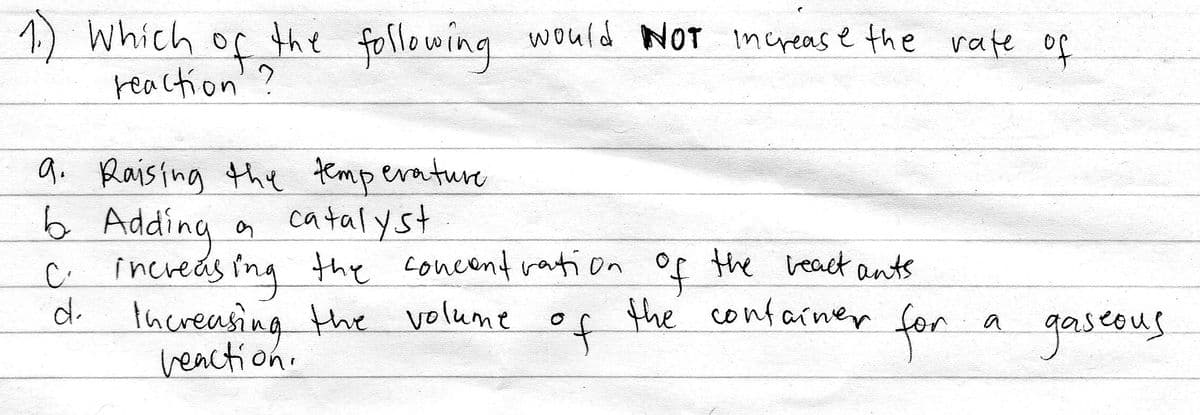 1.) Which of the following would NOT increase the rate of
reaction?
a. Raising the temperature
b Adding a catalyst.
c. increasing the concentration of the reactants
d. Increasing the volume of the container for a gaseous
reaction.